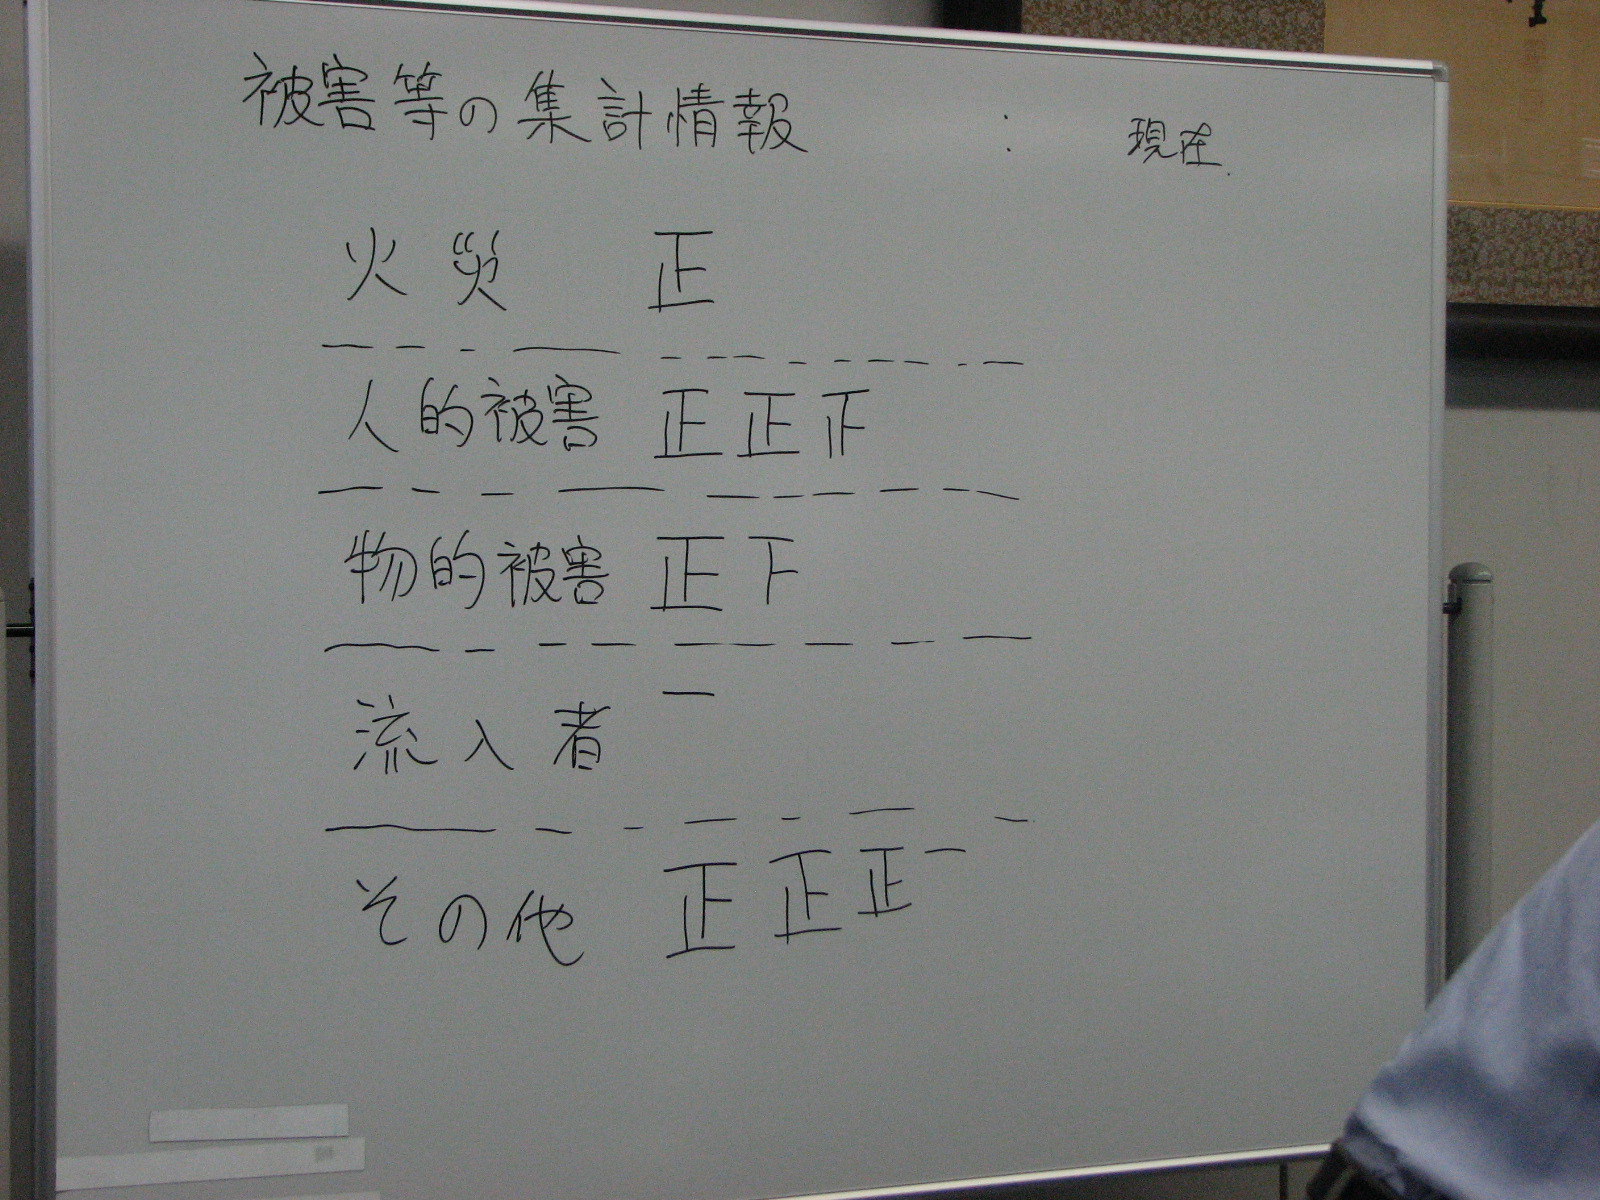 被害等の集計情報 : 現在
火災 正
人的被害 正正𤴓
物的被害 正下
流入者 一
その他 正正正一